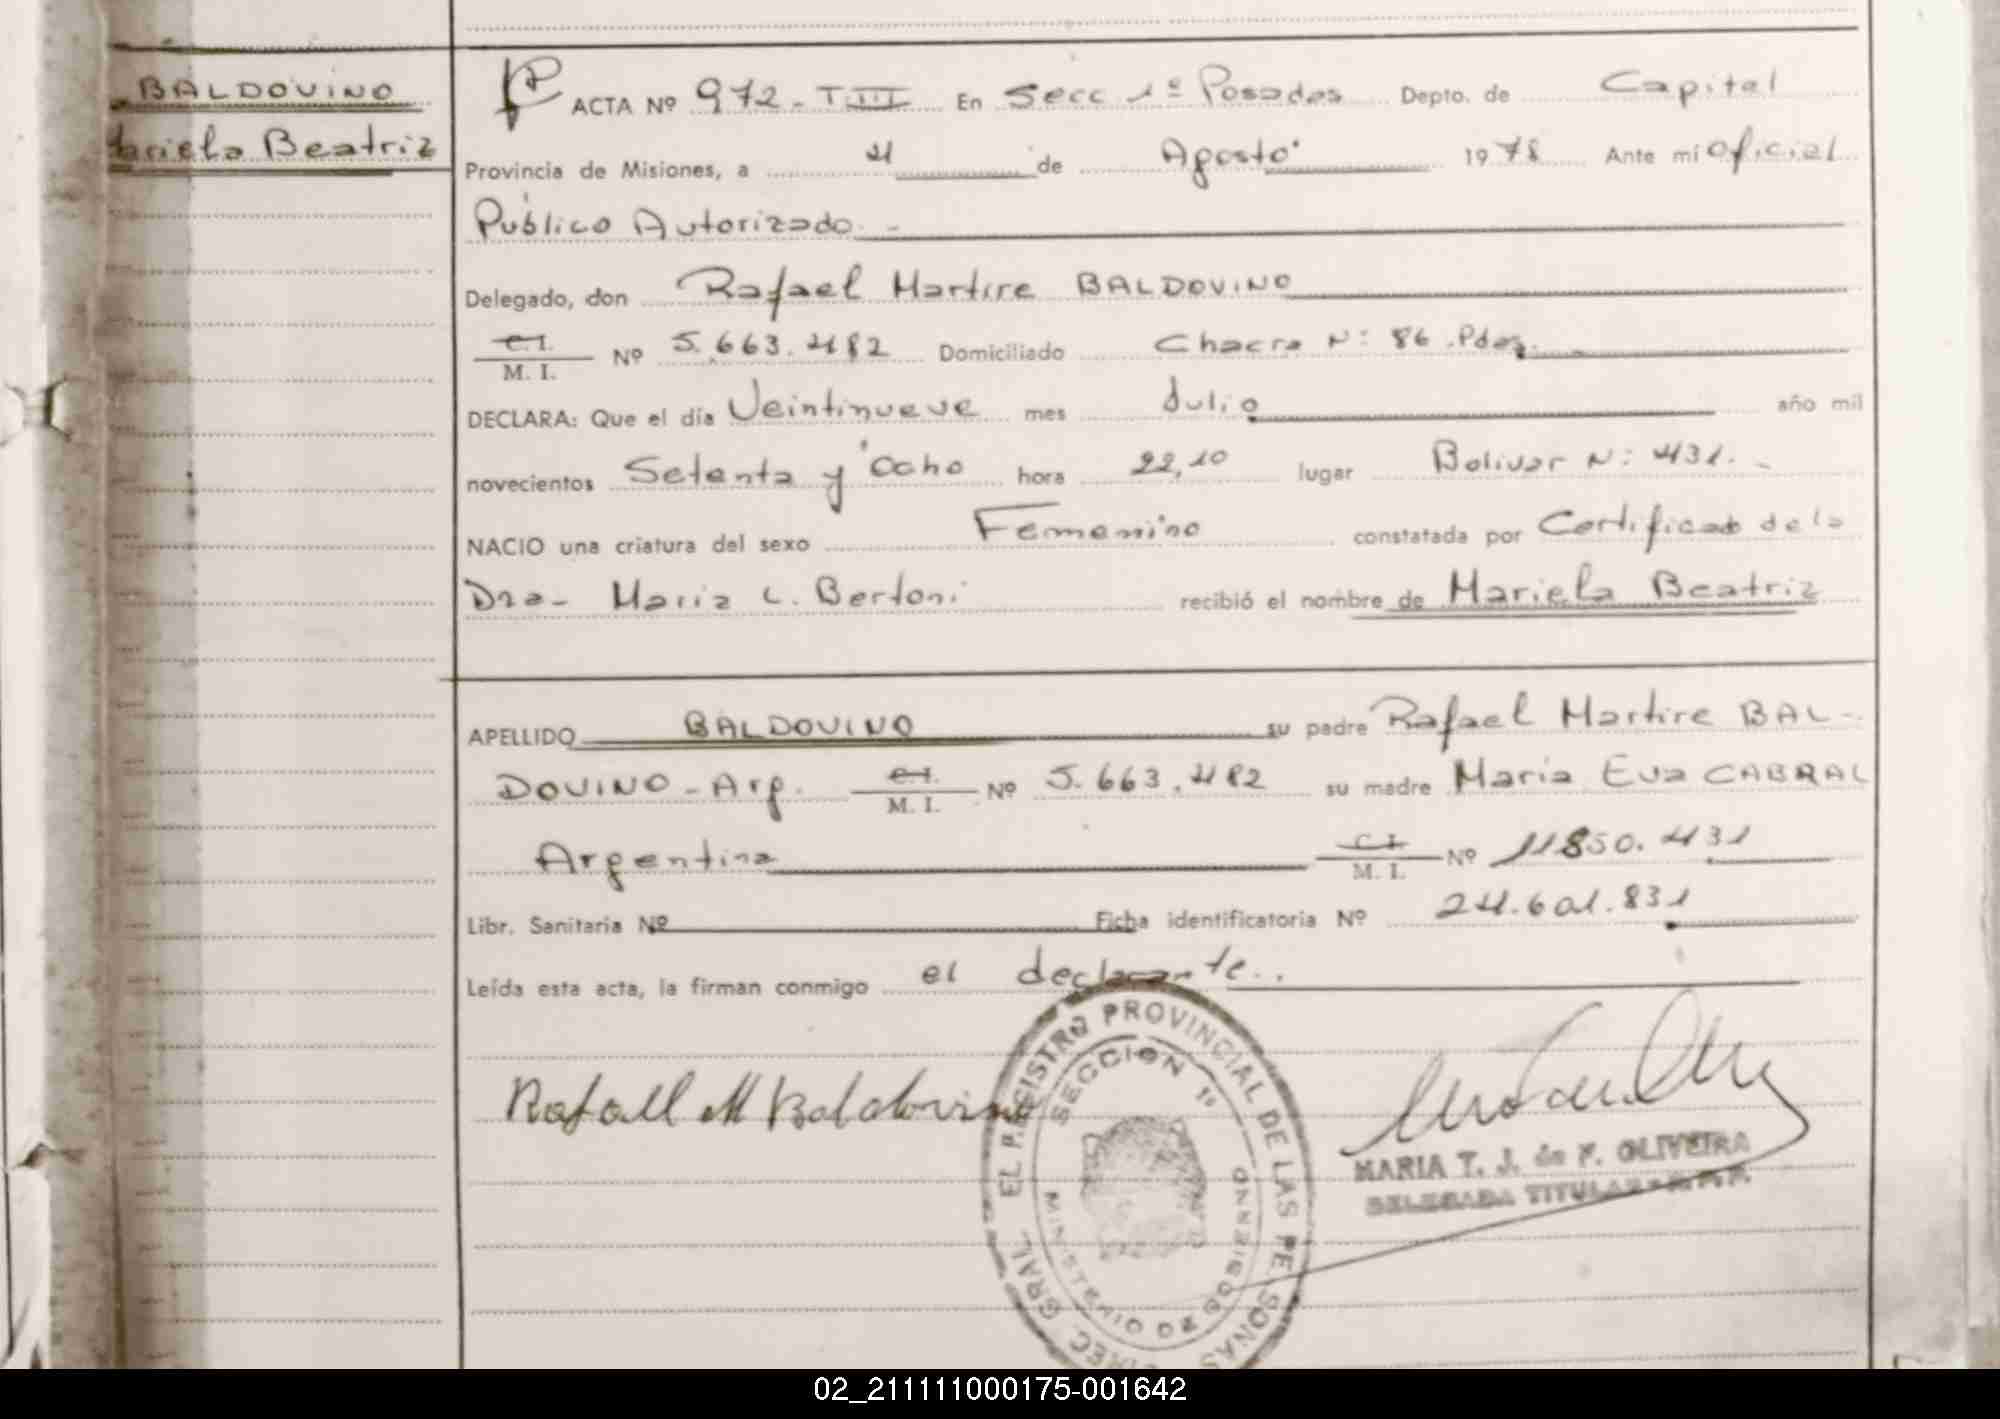 BALDOVINO
Mariela Beatriz
ACTA Nº 972-TIII En Secc 1º Posadas Depto. de Capital
Provincia de Misiones, a 4 de Agosto 1978 Ante mí Oficial
Público Autorizado.-
Delegado, don Rafael Martire BALDOVINO
C.I.
M. I. Nº 5.663.482 Domiciliado Chacra N: 86 .Pdas.
DECLARA: Que el día Veintinueve mes Julio año mil
novecientos Setenta y Ocho hora 22,10 lugar Bolivar N: 431.-
NACIO una criatura del sexo Femenino constatada por Certificado de la
Dra- Maria L. Bertoni recibió el nombre de Mariela Beatriz
APELLIDO BALDOVINO su padre Rafael Martire BAL-
DOVINO-Arg. C.I.
M. I. Nº 5.663.482 su madre Maria Eva CABRAL
Argentina C.I.
M. I. Nº 11850.431
Libr. Sanitaria Nº Ficha identificatoria Nº 24.601.831
Leída esta acta, la firman conmigo el declarante..
Rafael M Baldovino
DIREC GRAL. EL P. REGISTRO PROVINCIAL DE LAS PERSONAS
SECCION 1º
MINISTERIO DO GOBIERNO
MARIA T. J. de F. OLIVEIRA
DELEGADA TITULAR
02_211111000175-001642